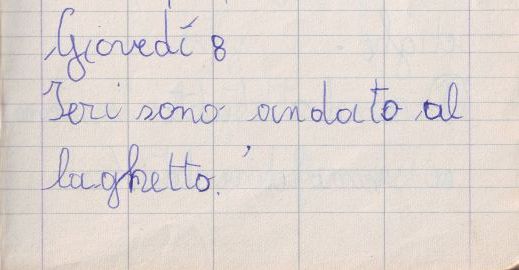 Giovedí 8
Ieri sono andato al
laghetto.